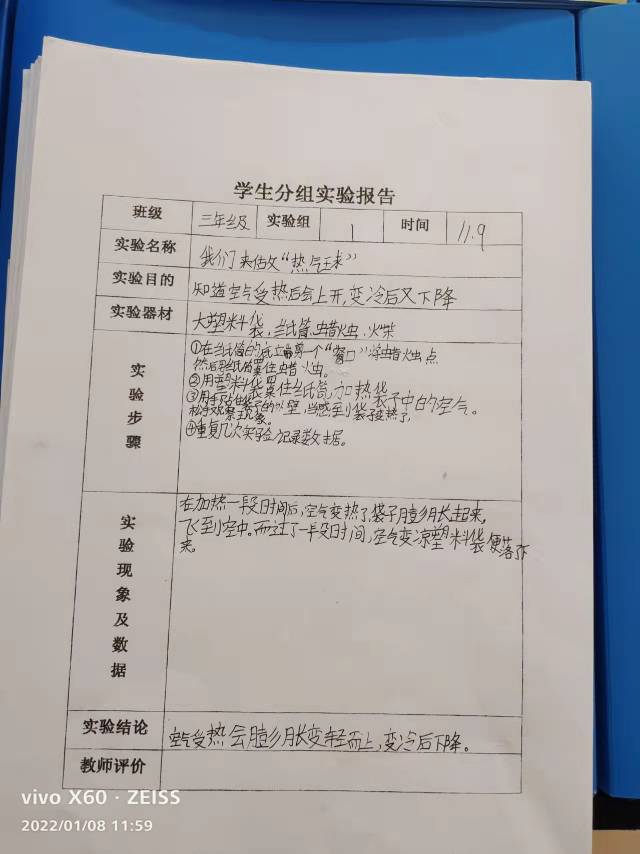 学生分组实验报告
班级 三年级 实验组 1 时间 11.9
实验名称 我们来做"热气球"
实验目的 知道空气受热后会上升,变冷后又下降
实验器材 大塑料袋,纸筒,蜡烛,火柴
实验步骤
①在纸筒的底立端剪一个"窗口",将蜡烛点
然后用纸筒罩住蜡烛。
②用塑料袋罩住纸筒,加热袋子中的空气。
③用手袋子的外壁,当感到袋变热了,
松手观察现象。
④重复几次实验,记录数据。
实验现象及数据
在加热一段时间后,空气变热了袋子膨胀起来,
飞到空中。而过了一段时间,空气变凉塑料袋便落下
来。
实验结论 空气受热会膨胀变轻而上,变冷后下降。
教师评价
vivo X60 · ZEISS
2022/01/08 11:59